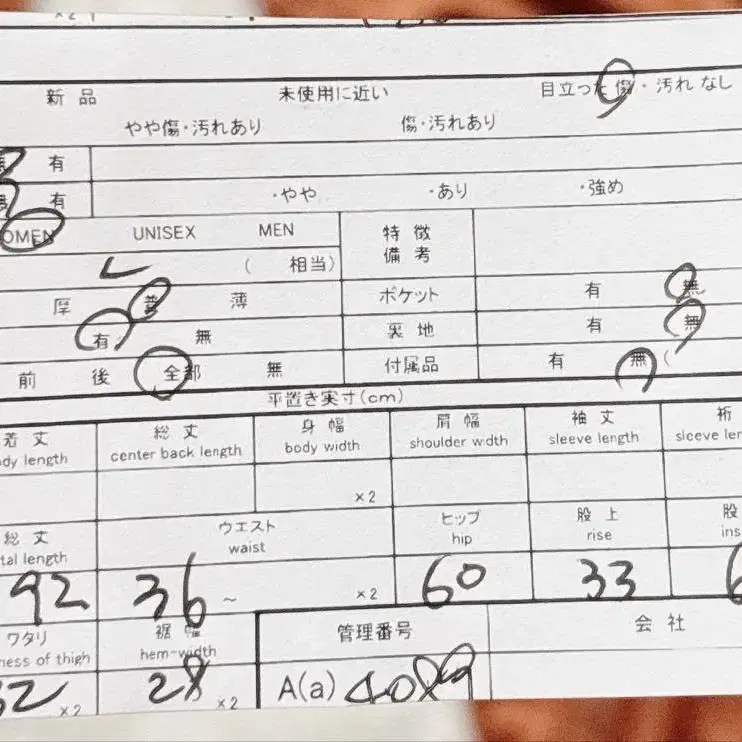 新品 未使用に近い 目立った傷・汚れなし
やや傷・汚れあり 傷・汚れあり
有
有 ・やや ・あり ・強め
OMEN UNISEX MEN 特徴
備考
L ( 相当)
厚 普 薄 ポケット 有 無
有 無 裏地 有 無
前 後 全部 無 付属品 有 無 (
平置き実寸(cm)
着丈 総丈 身幅 肩幅 袖丈 裄
dy length center back length body width shoulder width sleeve length sleeve len
×2
総丈 ウエスト ヒップ 股上 股
tal length waist hip rise ins
92 36 ~ ×2 60 33 6
ワタリ 裾幅 管理番号 会社
ness of thigh hem-width
32 ×2 28 ×2 A(a) 4089